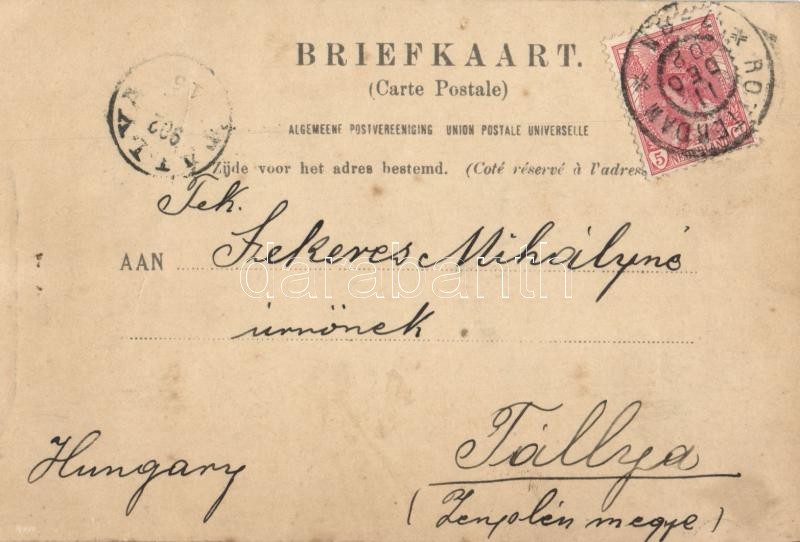 BRIEFKAART.
(Carte Postale)
ALGEMEENE POSTVEREENIGING UNION POSTALE UNIVERSELLE
Zijde voor het adres bestemd. (Coté réservé à l'adres
Tek.
AAN Szekeres Mihályné
úrnőnek
Tállya
Hungary
(Zemplén megye)
ROTTERDAM
11 DEC 02
5 NEDERLAND CT
TÁLLYA
902
darabanth